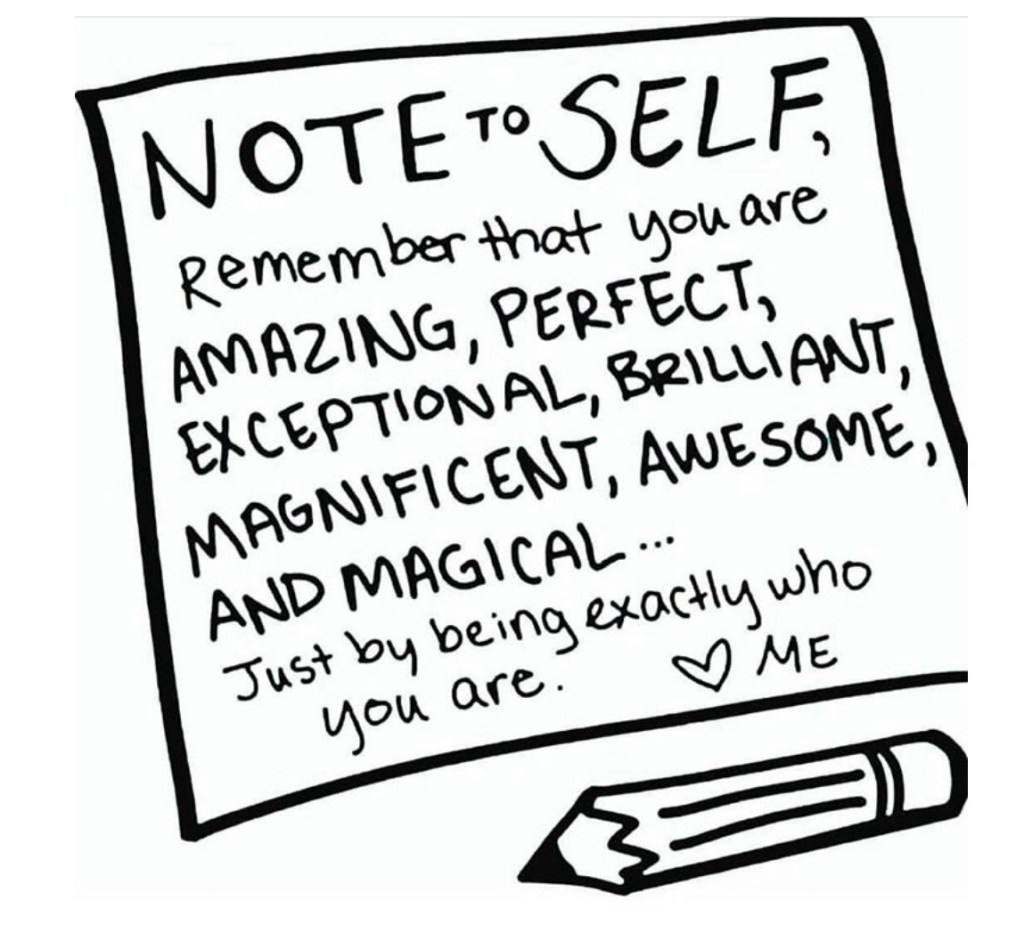 NOTE TO SELF,
Remember that you are
AMAZING, PERFECT,
EXCEPTIONAL, BRILLIANT,
MAGNIFICENT, AWESOME,
AND MAGICAL...
Just by being exactly who
you are. ♡ ME